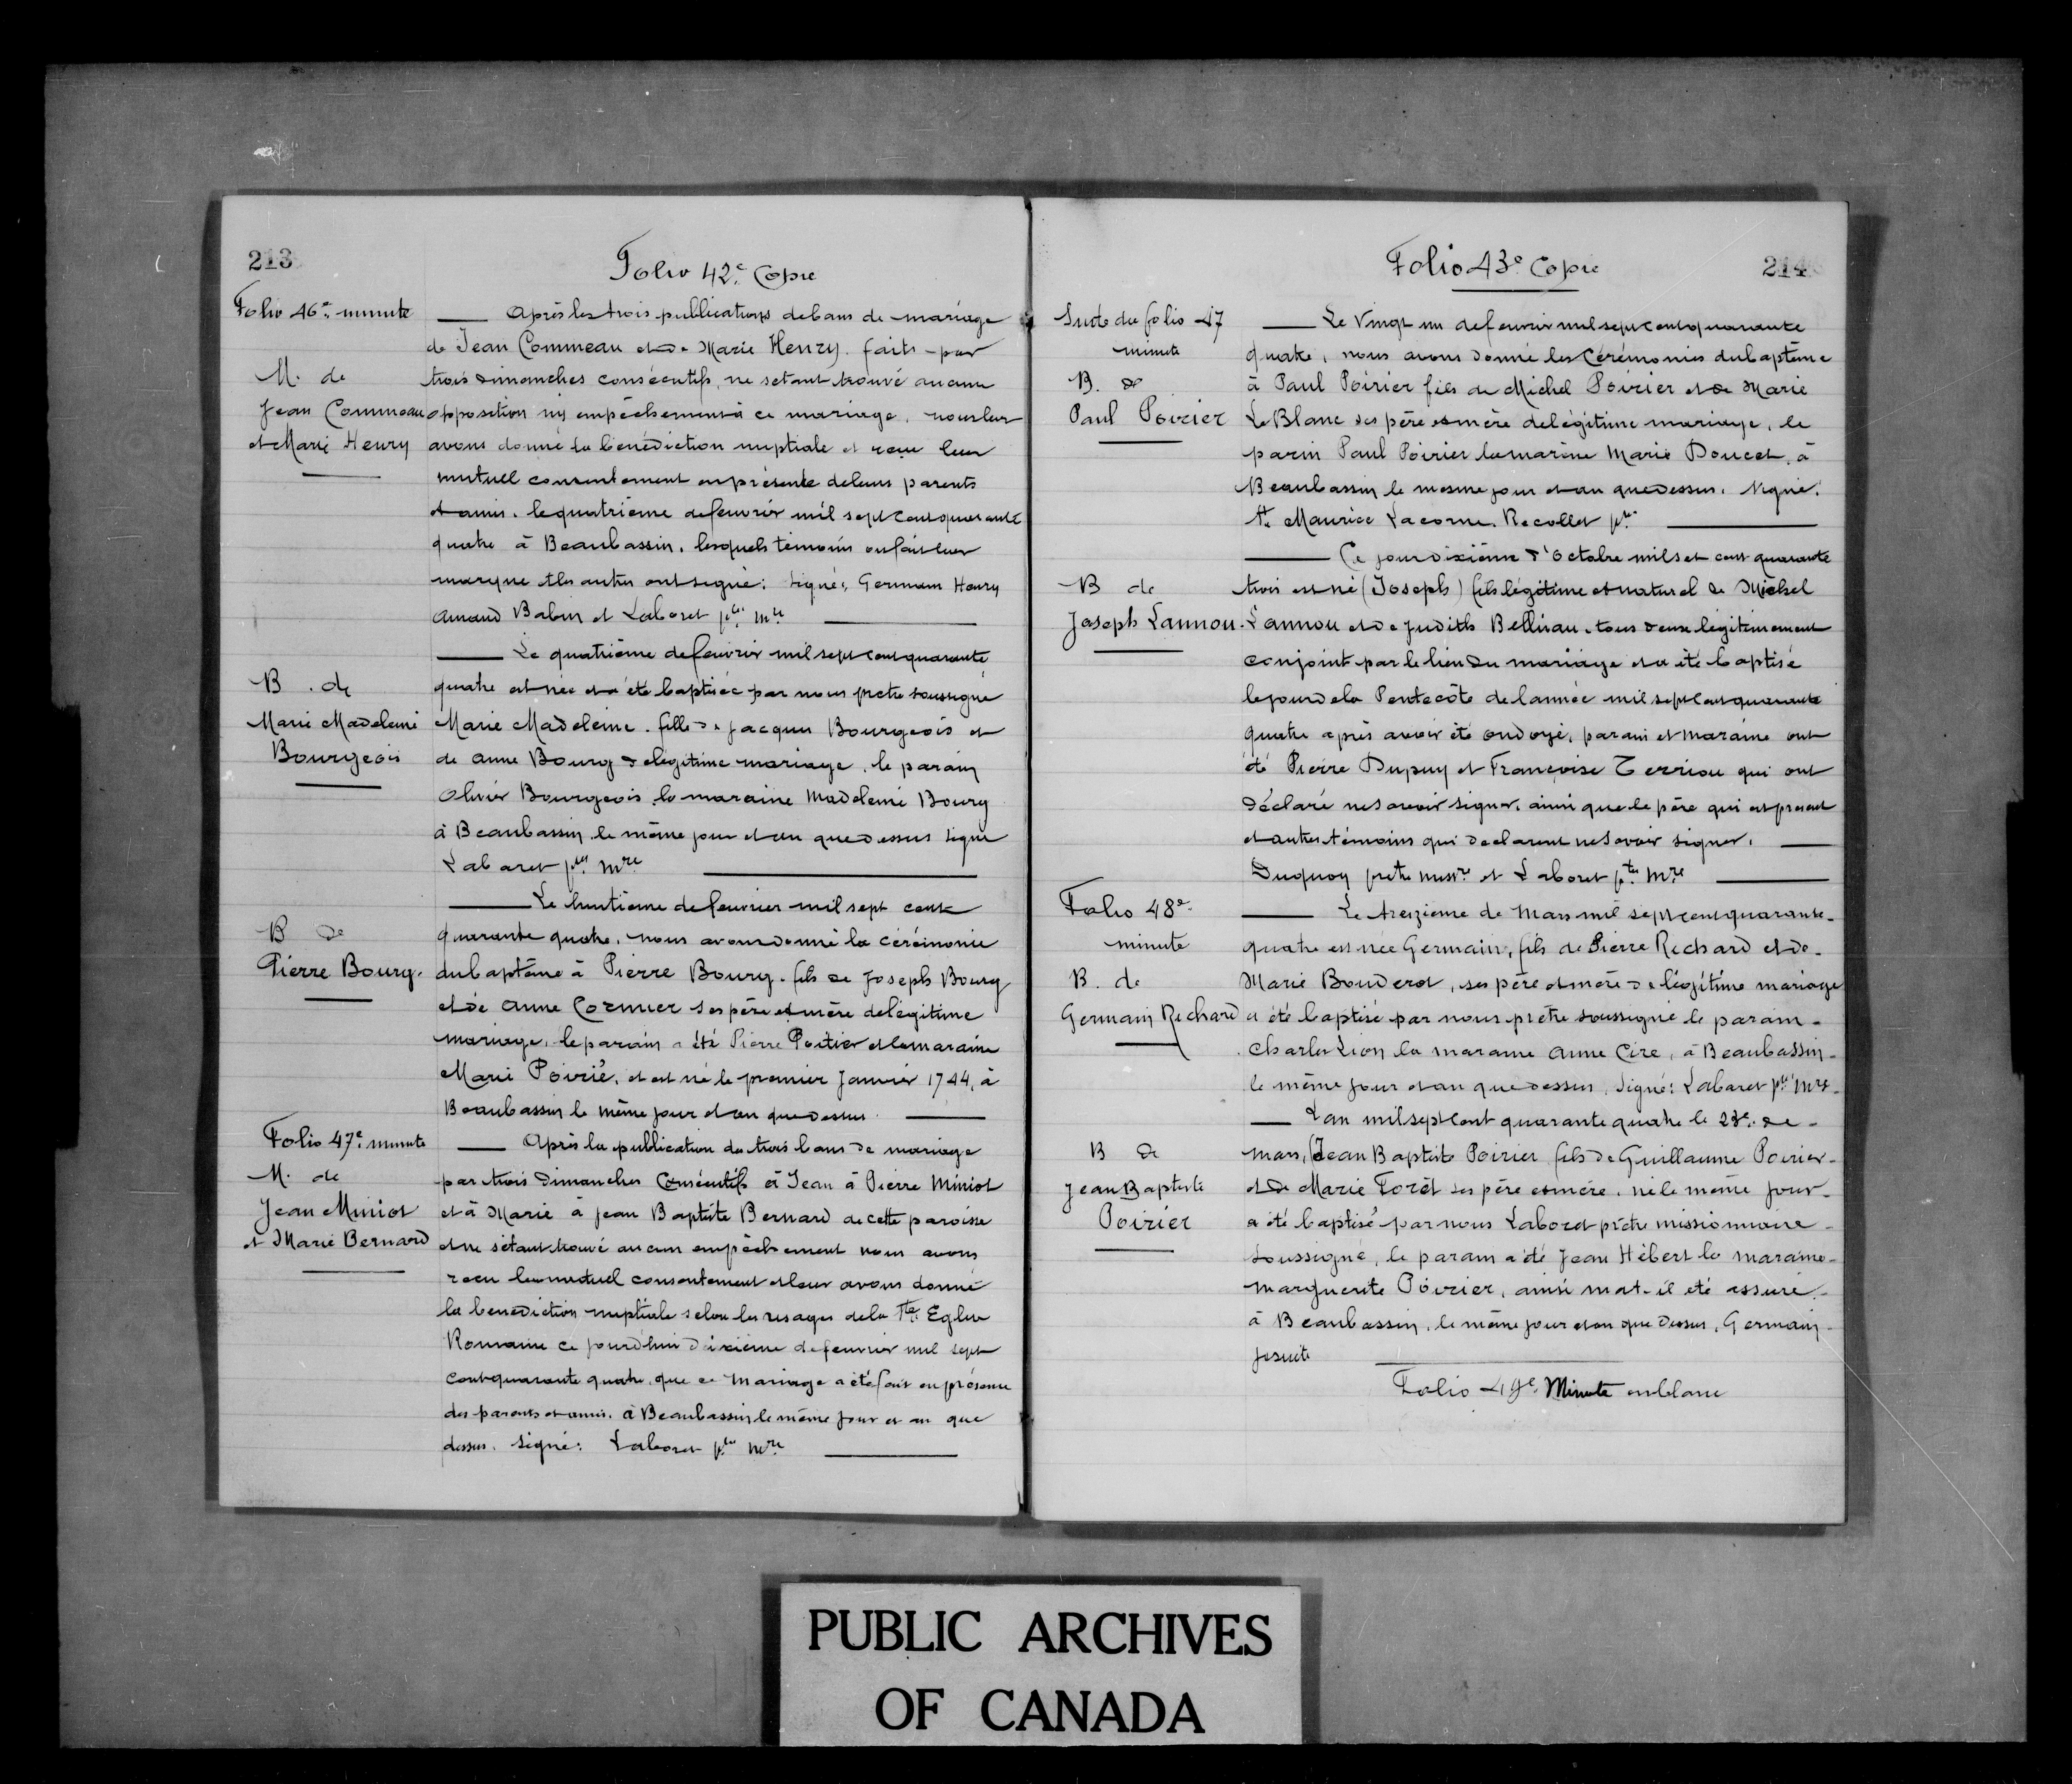 213
Folio 42e Copie
Folio 46e minute
M. de
Jean Commeau
et Marie Henry
Après les trois publications de bans de mariage
de Jean Commeau et de Marie Henry. faits par
trois dimanches consécutifs, ne setant trouvé aucune
opposition ny empêchement à ce mariage, nous leur
avons donné la bénédiction nuptiale et reçu leur
mutuel consentement en présente de leurs parents
et amis. le quatrième de feuvrier mil sept cent quarante
quatre à Beaubassin, lesquels témoins on fait leur
marque et les autres ont signé: Signé: Germain Henry
Amand Babin et Laboret ptre mre
B. de
Marie Madeleine
Bourgeois
Le quatrième de feuvrier mil sept cent quarante
quatre est née et a été baptisée par nous pretre soussigné
Marie Madeleine. fille de Jacques Bourgeois et
de Anne Bourg de légitime mariage, le parain
Olivier Bourgeois la maraine Madeleine Bourg
à Beaubassin le même jour et an que dessus signé
Laboret ptre mre
B de
Pierre Bourg.
Le huitieme de feuvrier mil sept cent
quarante quatre, nous avons donné la cérémonie
du baptême à Pierre Bourg. fils de Joseph Bourg
et de Anne Cormier ses père et mère de légitime
mariage, le parain a été Pierre Poitier et la maraine
Marie Poirié, et est né le premier Janvier 1744, à
Beaubassin le même jour et an que dessus.
Folio 47e minute
M. de
Jean Miniot
et Marie Bernard
Après la publication de trois bans de mariage
par trois dimanches Consécutifs à Jean à Pierre Miniot
et à Marie à Jean Baptiste Bernard de cette paroisse
et ne sétant trouvé aucun empêchement nous avons
recu leur mutuel consentement et leur avons donné
la benediction nuptiale selon les usages de la Ste Eglise
Romaine ce jourd'hui dixième de feuvrier mil sept
cent quarante quatre, que ce mariage a été fait en présence
des parents et amis. à Beaubassin le même jour et an que
dessus. Signé: Laboret ptre mre
Folio 43e Copie
214
Suite du folio 47
minute
B. de
Paul Poirier
Le Vingt un de feuvrier mil sept cent quarante
quatre, nous avons donné les Cérémonies du baptême
à Paul Poirier fils de Michel Poirier et de Marie
LeBlanc ses père et mère de légitime mariage, le
parin Paul Poirier la marine Marie Doucet, à
Beaubassin le mesme jour et an que dessus. Signé.
fr. Maurice Lacorne. Recollet ptre
B de
Joseph Lannou.
Ce jour dixième d'octobre mil set cent quarante
trois est né (Joseph) fils légitime et naturel de Michel
Lannou et de Judith Belliveau. tous deux légitimement
conjoint par le lien du mariage et a été baptisé
le jour de la Pentecôte de l'année mil sept cent quarante
quatre après avoir été ondoyé, parain et maraine ont
été Pierre Dupuy et Françoise Terriou qui ont
déclaré ne savoir signer. ainsi que le père qui est présent
et autres témoins qui declarent ne savoir signer.
Duquoy pretre missre et Laboret ptre mre
Folio 48e
minute
B. de
Germain Richard
Le treizieme de Mars mil sept cent quarante
quatre est née Germain, fils de Pierre Richard et de
Marie Bouderot, ses père et mère de légitime mariage
a été baptisé par nous prêtre soussigné le parain
Charles Lion la maraine Anne Cire, à Beaubassin
le même jour et an que dessus. Signé: Laboret ptre mre
B de
Jean Baptiste
Poirier
L'an mil sept cent quarante quatre le 23e de
mars, Jean Baptiste Poirier fils de Guillaume Poirier
et de Marie Forêt ses père et mère. né le même jour
a été baptisé par nous Laboret prêtre missionnaire
soussigné, le parain a été Jean Hébert la maraine
marguerite Poirier, ainsi m'at-il été assuré.
à Beaubassin, le même jour et an que dessus, Germain
jesuite
Folio 49e. Minute en blanc
PUBLIC ARCHIVES
OF CANADA